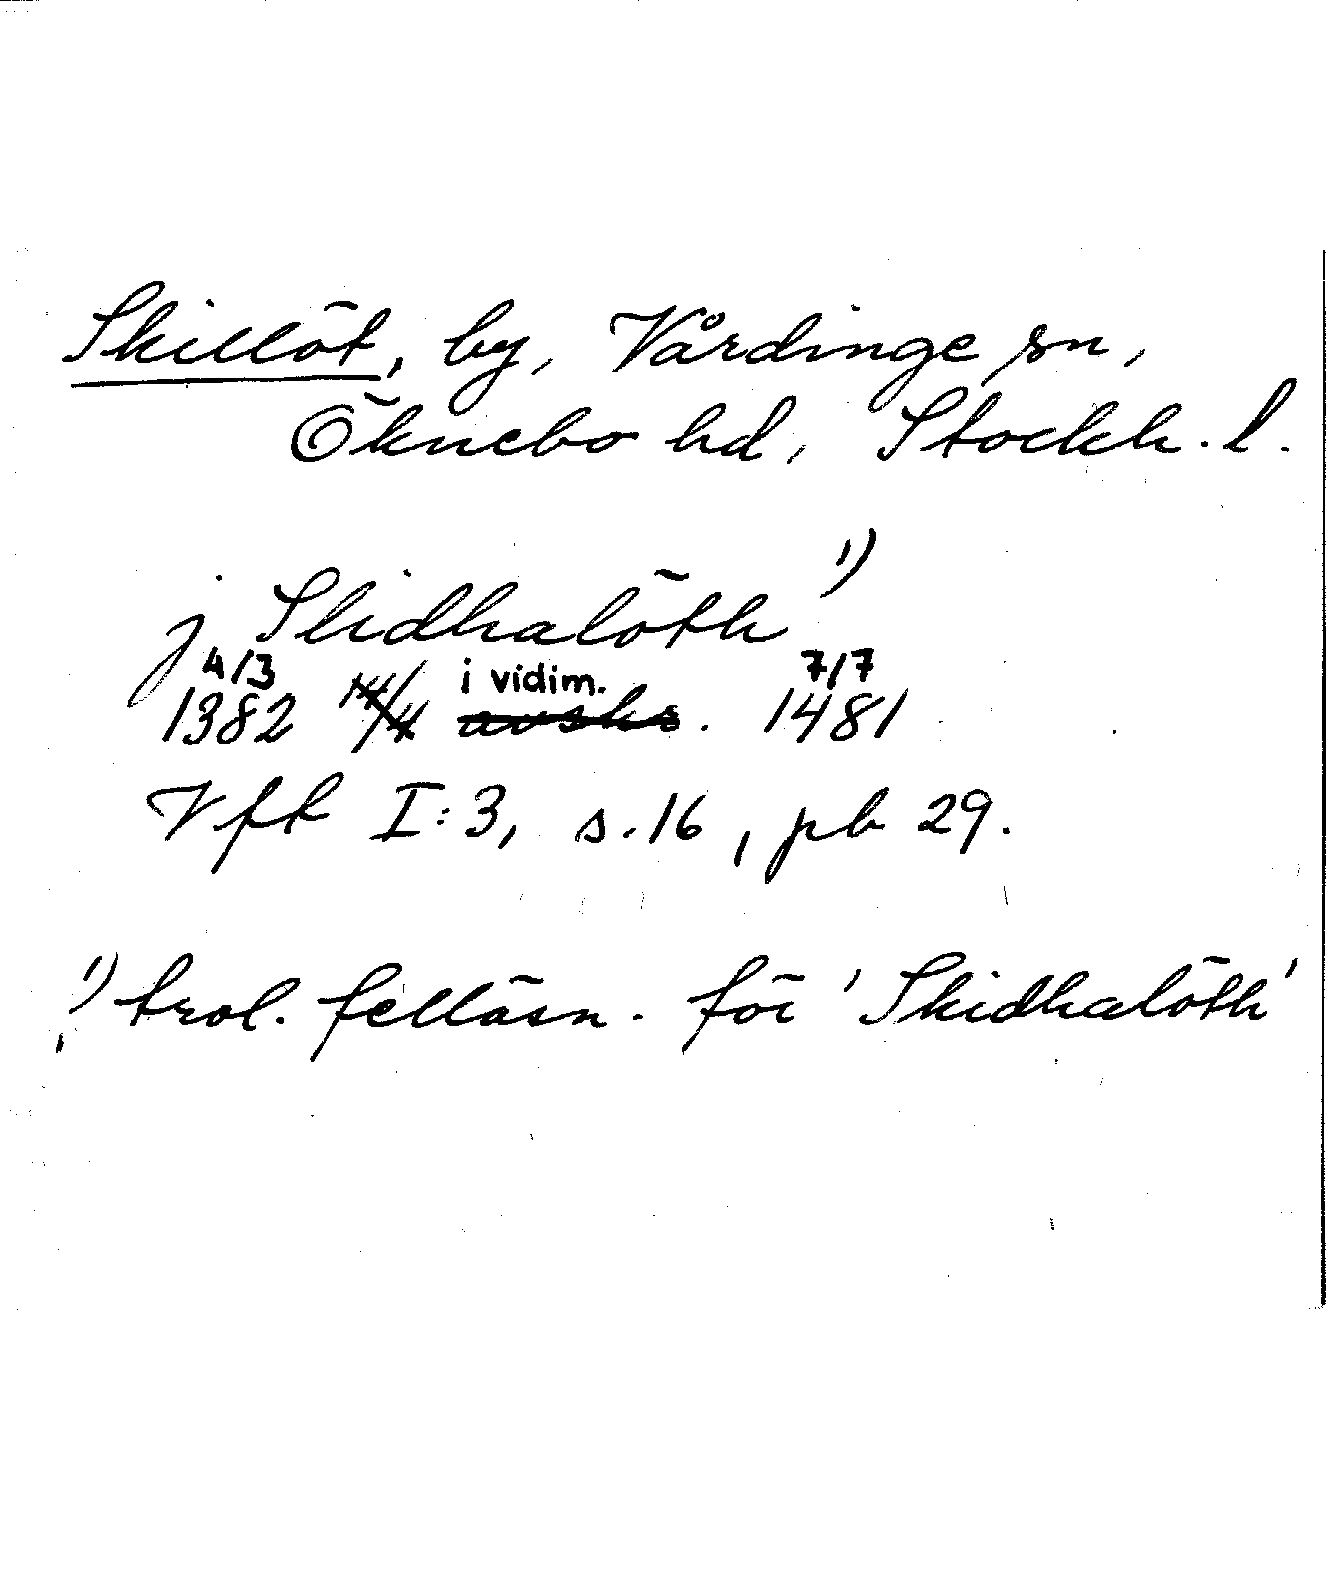 Skillöt, by, Vårdinge sn,
Öknebo hd, Stockh. l.
j Slidhalöth 1)
4/3 i vidim. 7/7
1382 14/4 avskr. 1481
Vfk I:3, s. 16, pb 29.
1) trol. felläsn. för 'Skidhalöth'